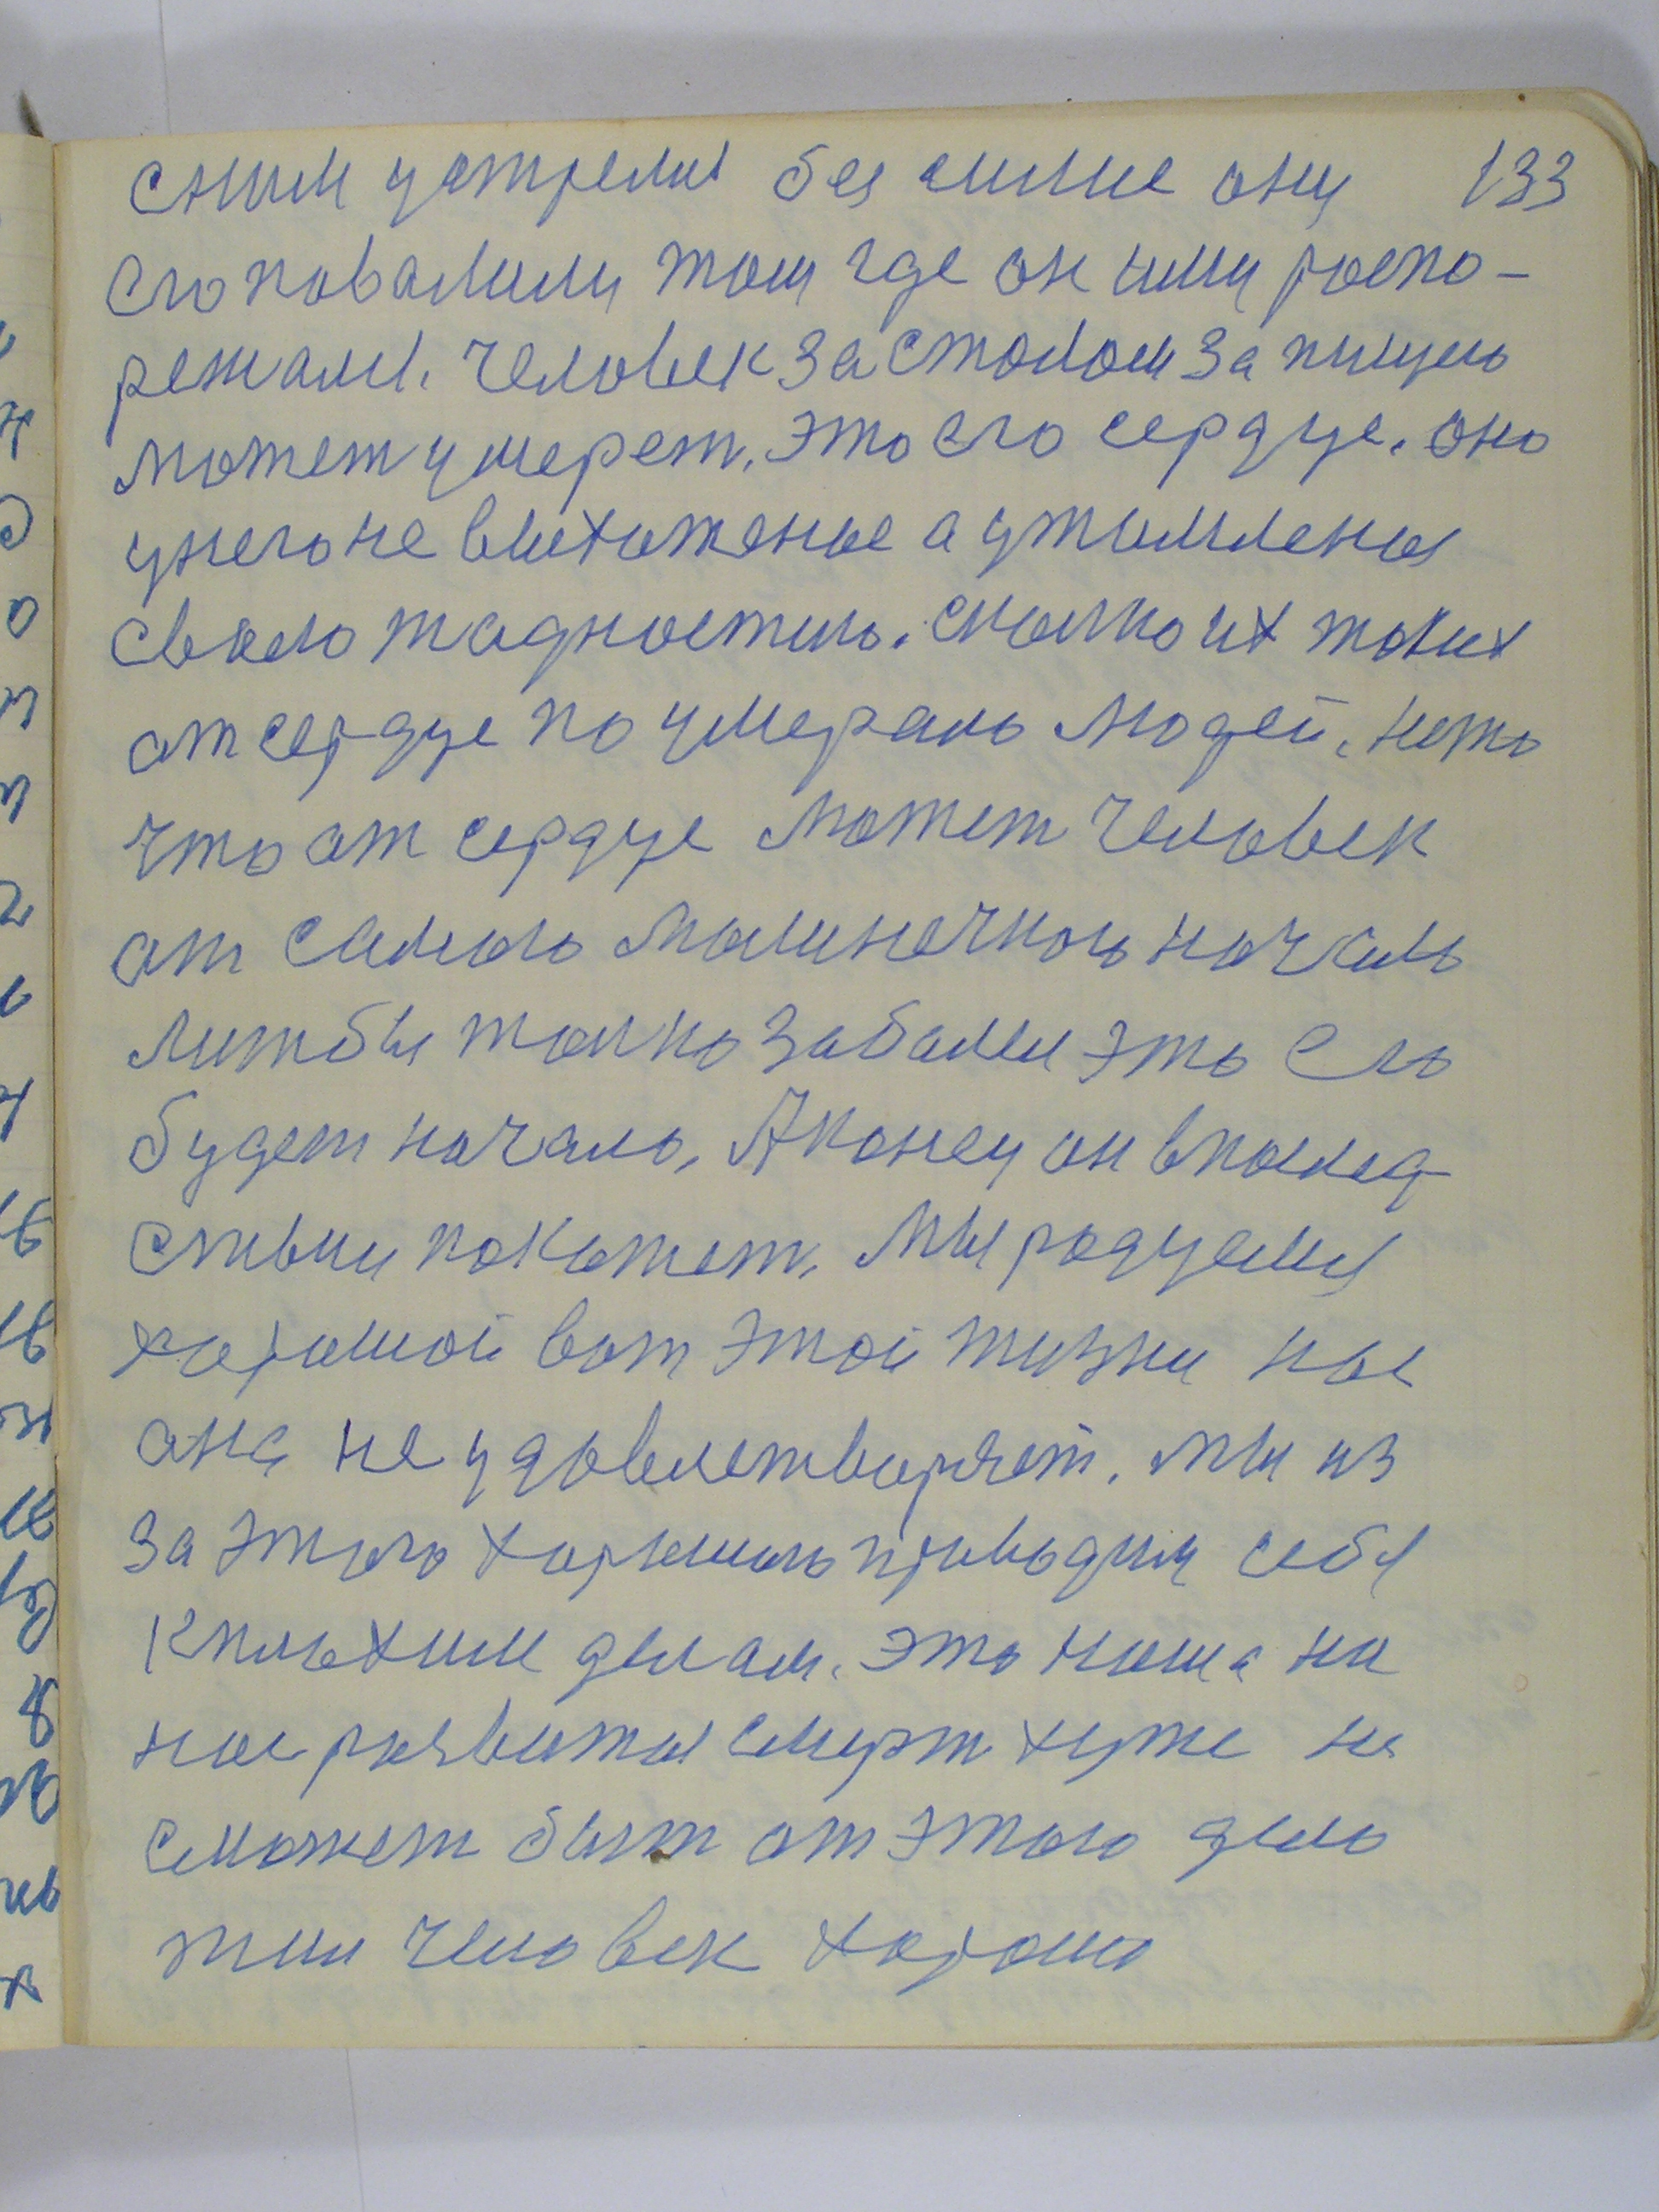 сним устрелил бессилие ани 133
его повалили там где он ими распо-
режался. Человек за столом за пищею
может умерет. Это его сердце. оно
унего не виноженое а утомленая
своею жадностию. сколко их таких
от сердце по умерало людей. нето
что от сердце может человек
от самого малинечкого начало
лиш бы толко заболел это его
будет начало, А конец он впослед
ствии покажет. Мы радуемся
хорошой вот этой жизни нас
она не удовлетворяет. мы из
за этого хорошого приводим себя
кплохим делам. это наша на
нас развитая смерт хуже не
сможет быт от этого дело
жил человек хорошо